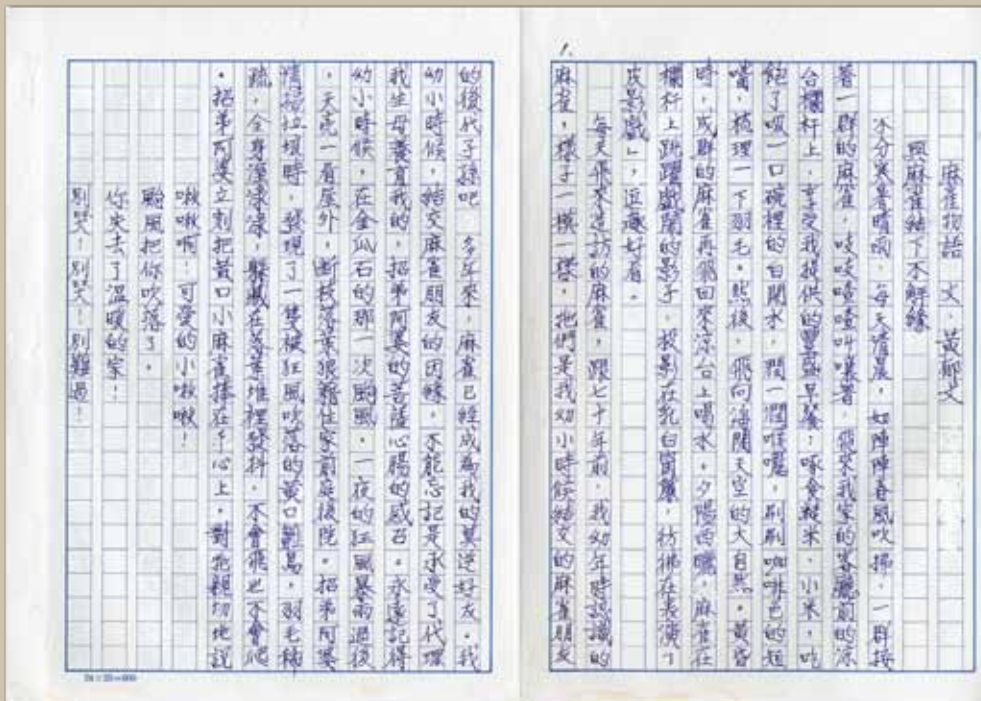 1.
麻雀物語　文．黃郁文
與麻雀結下不解緣
不分寒暑晴雨，每天清晨，如陣陣春風吹拂，一群接
著一群的麻雀，吱吱喳喳叫嚷著，飛來我家的客廳前的涼
台欄杆上，享受我提供的豐盛早餐；啄食糙米、小米，吃
飽了吸一口碗裡的白開水，潤一潤喉嚨，刷刷咖啡色的短
嘴，梳理一下羽毛。然後，飛向海闊天空的大自然。黃昏
時，成群的麻雀再飛回來涼台上喝水。夕陽西曬，麻雀在
欄杆上跳躍戲鬧的影子，投影在乳白窗簾，彷彿在表演「
皮影戲」，逗趣好看。
每天飛來造訪的麻雀，跟七十年前，我幼年時認識的
麻雀，樣子一模一樣，牠們是我幼小時候結交的麻雀朋友
的後代子孫吧　多年來，麻雀已經成為我的莫逆好友。我
幼小時候，結交麻雀朋友的因緣，不能忘記是承受了代理
我生母養育我的，招弟阿婆的菩薩心腸的感召。永遠記得
幼小時候，在金瓜石的那一次颱風，一夜的狂風暴雨過後
，天亮一看屋外，斷枝落葉狼藉住家前庭後院。招弟阿婆
清掃垃圾時，發現了一隻被狂風吹落的黃口雛鳥，羽毛稀
疏，全身溼漉漉，躲藏在落葉堆裡發抖，不會飛也不會爬
。招弟阿婆立刻把黃口小麻雀捧在手心上，對牠親切地說
啾啾啊！可愛的小啾啾！
颱風把你吹落了。
你失去了溫暖的家！
別哭！別哭！別難過！